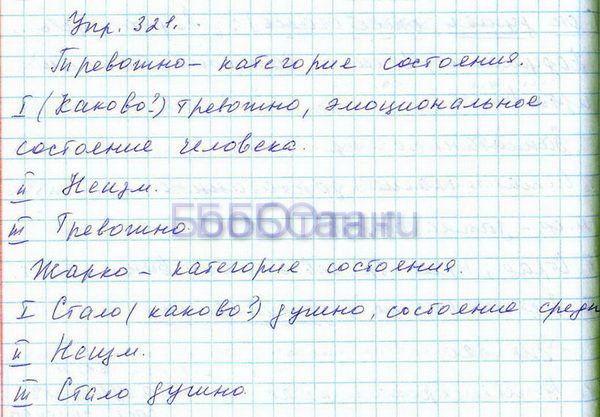 Упр. 321.
Тревожно – категорие состояния.
I (Каково?) тревожно, эмоциональное
состояние человека.
II Неизм.
III Тревожно.
Жарко – категорие состояния.
I Стало (каково?) душно, состояние среды
II Неизм.
III Стало душно.